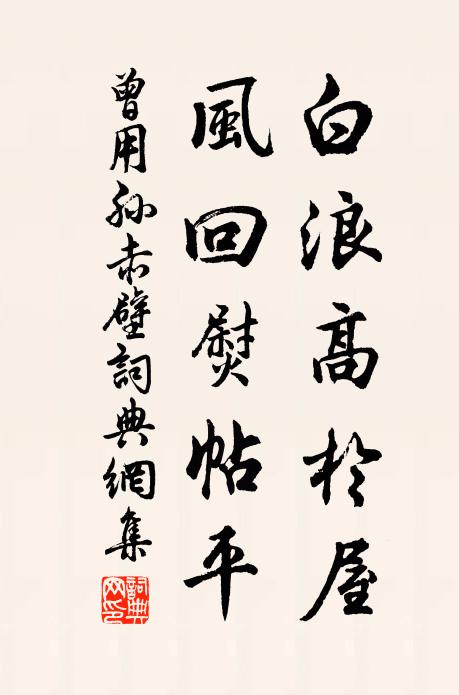 白浪高於屋
風回熨帖平
曾用孫赤壁詞典網集
詞典网印